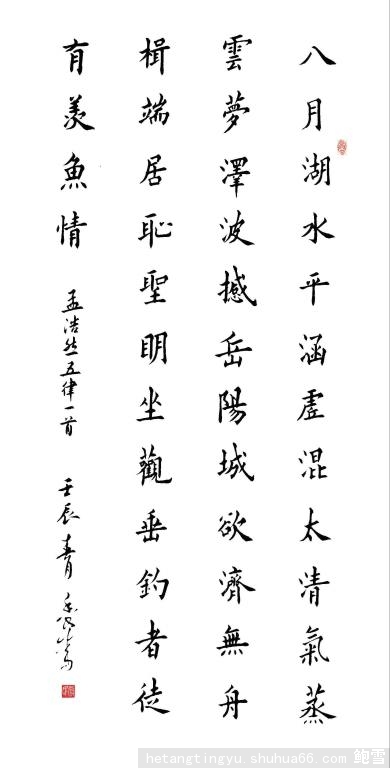 八月湖水平涵虗混太清氣蒸
雲夢澤波撼岳陽城欲濟無舟
楫端居恥聖明坐觀垂釣者徒
有羨魚情
孟浩然五律一首
壬辰青
hetangtingyu.shuhua66.com 鲍雪